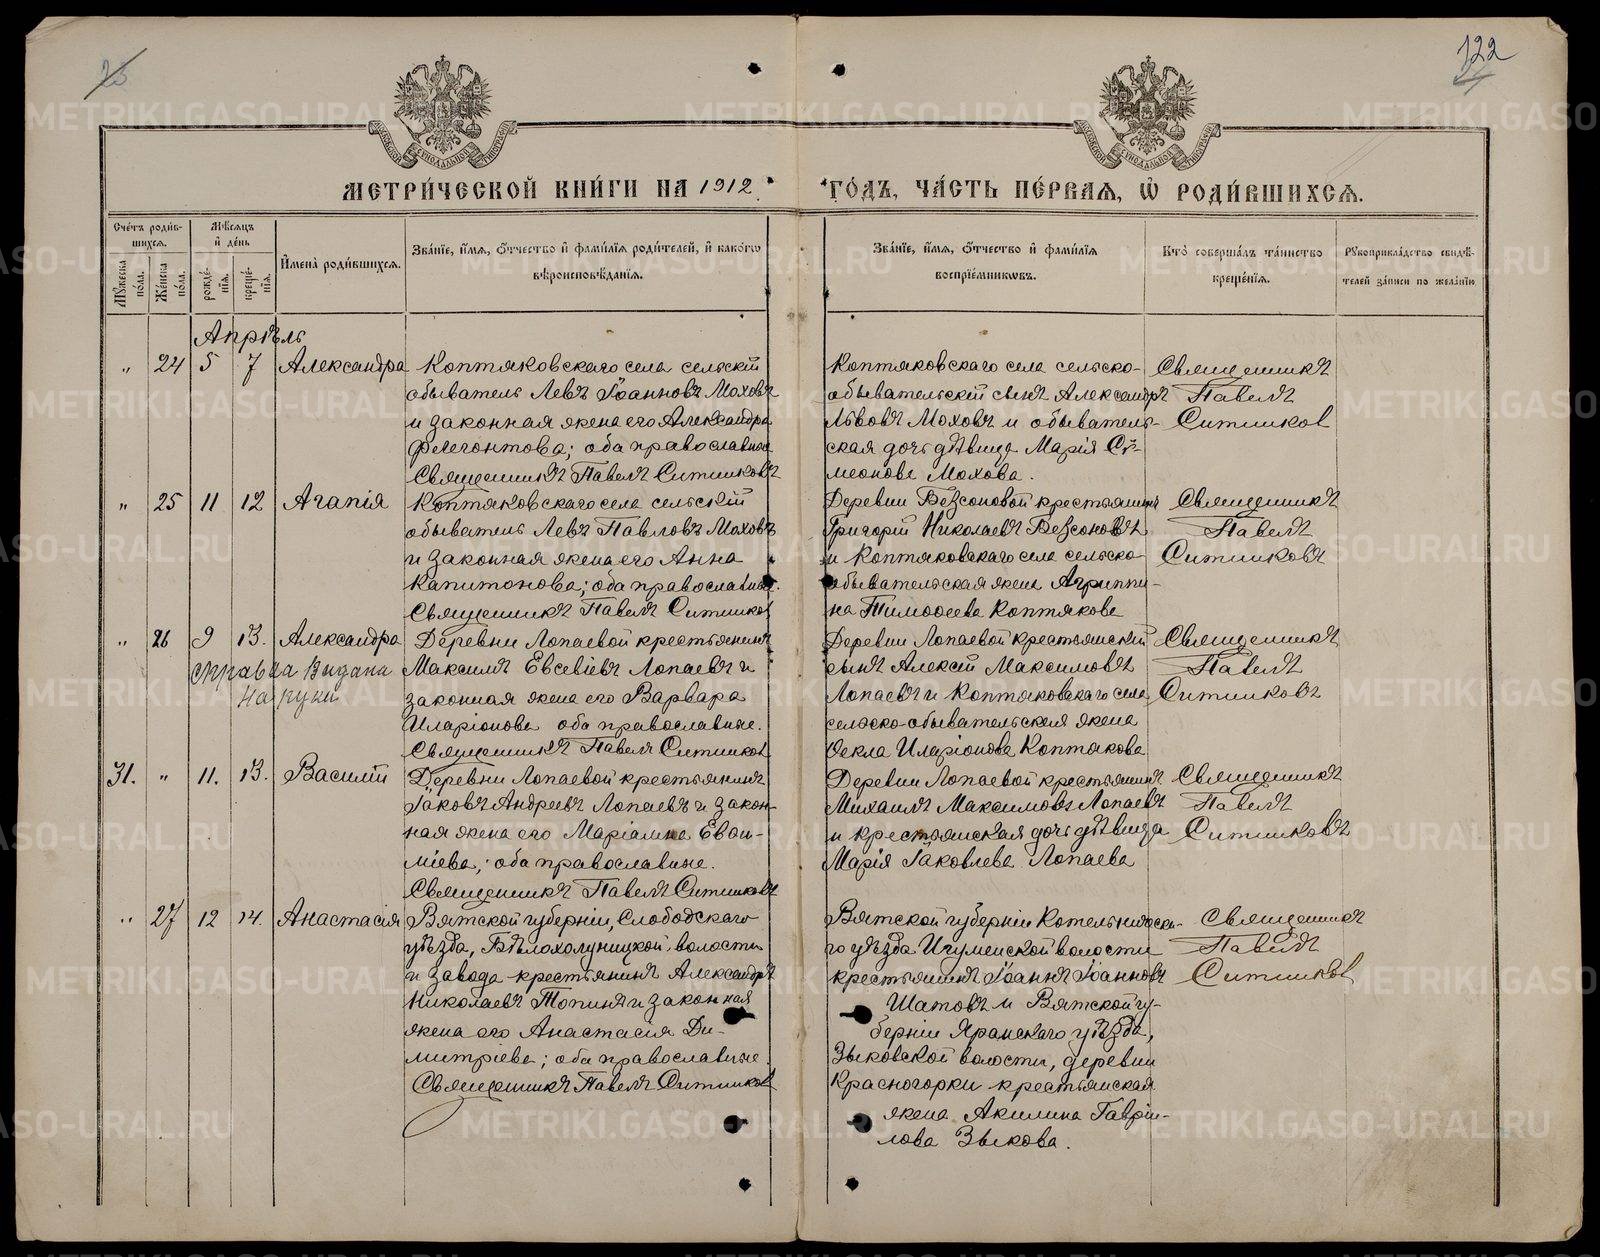 25
122
МЕТРИ́ЧЕСКОЙ КНИ́ГИ НА 1912
ГО́ДЪ, ЧА́СТЬ ПЕ́РВАЯ, Ѡ РОДИ́ВШИХСЯ.
Сче́тъ роди́в-
шихся.
Мѣ́сяцъ
и́ де́нь
И́мена̀ роди́вшихся.
Зва́нїе, и́мя, ѻ́тчество и́ фами́лїя роди́телей, и́ како́гѡ
вѣроисповѣ́данїя.
Зва́нїе, и́мя, ѻ́тчество и́ фами́лїя
воспрїе́мниковъ.
Кто̀ соверша́лъ та́инство
креще́нїя.
Рꙋкоприкла́дство свидѣ́-
телей за́писи по жела́нїю
Мꙋ́жеска
по́ла.
Же́нска
по́ла.
рожде́-
нїя.
креще́-
нїя.
Апрѣль
„ 24 5 7 Александра
Коптяковскаго села сельскій
обыватель Левъ Іоанновъ Моховъ
и законная жена его Александра
Флегонтова; оба православные
Священникъ Павелъ Ситниковъ
Коптяковскаго села сельско-
обывательскій сынъ Александръ
Львовъ Моховъ и обыватель-
ская дочь дѣвица Марія Сѵ-
меонова Мохова.
Священникъ
Павелъ
Ситников
„ 25 11 12 Агапія
Коптяковскаго села сельскій
обыватель Левъ Павловъ Моховъ
и законная жена его Анна
Капитонова; оба православные.
Священникъ Павелъ Ситников
Деревни Безсоновой крестьянинъ
Григорій Николаевъ Безсоновъ
и Коптяковскаго села сельско-
обывательская жена Агриппи-
на Тимоѳеева Коптякова
Священникъ
Павелъ
Ситниковъ
„ 26 9 13. Александра
справка выдана
на руки
Деревни Лопаевой крестьянинъ
Максимъ Евсевіевъ Лопаевъ и
законная жена его Варвара
Иларіонова оба православные.
Священникъ Павелъ Ситников
Деревни Лопаевой крестьянскій
сынъ Алексій Максимовъ
Лопаевъ и Коптяковскаго села
сельско-обывательская жена
Ѳекла Иларіонова Коптякова
Священникъ
Павелъ
Ситниковъ
31. „ 11. 13. Василій
Деревни Лопаевой крестьянинъ
Іаковъ Андреевъ Лопаевъ и закон-
ная жена его Маріамна Евѳи-
міева; оба православные.
Священникъ Павелъ Ситниковъ
Деревни Лопаевой крестьянинъ
Михаилъ Максимовъ Лопаевъ
и крестьянская дочь дѣвица
Марія Іаковлева Лопаева
Священникъ
Павелъ
Ситниковъ
„ 27 12 14. Анастасія
Вятской губерніи, Слободскаго
уѣзда, Бѣлохолуницкой волости
и завода крестьянинъ Александръ
Николаевъ Топинъ и законная
жена его Анастасія Ди-
митріева; оба православные.
Священникъ Павелъ Ситников
Вятской губерніи Котельническа-
го уѣзда Игуменской волости
крестьянинъ Іоаннъ Іоанновъ
Шатовъ и Вятской гу-
берніи Яранскаго уѣзда,
Зыковской волости, деревни
Красногорки крестьянская
жена Акилина Гаврiи-
лова Зыкова.
Священникъ
Павелъ
Ситников